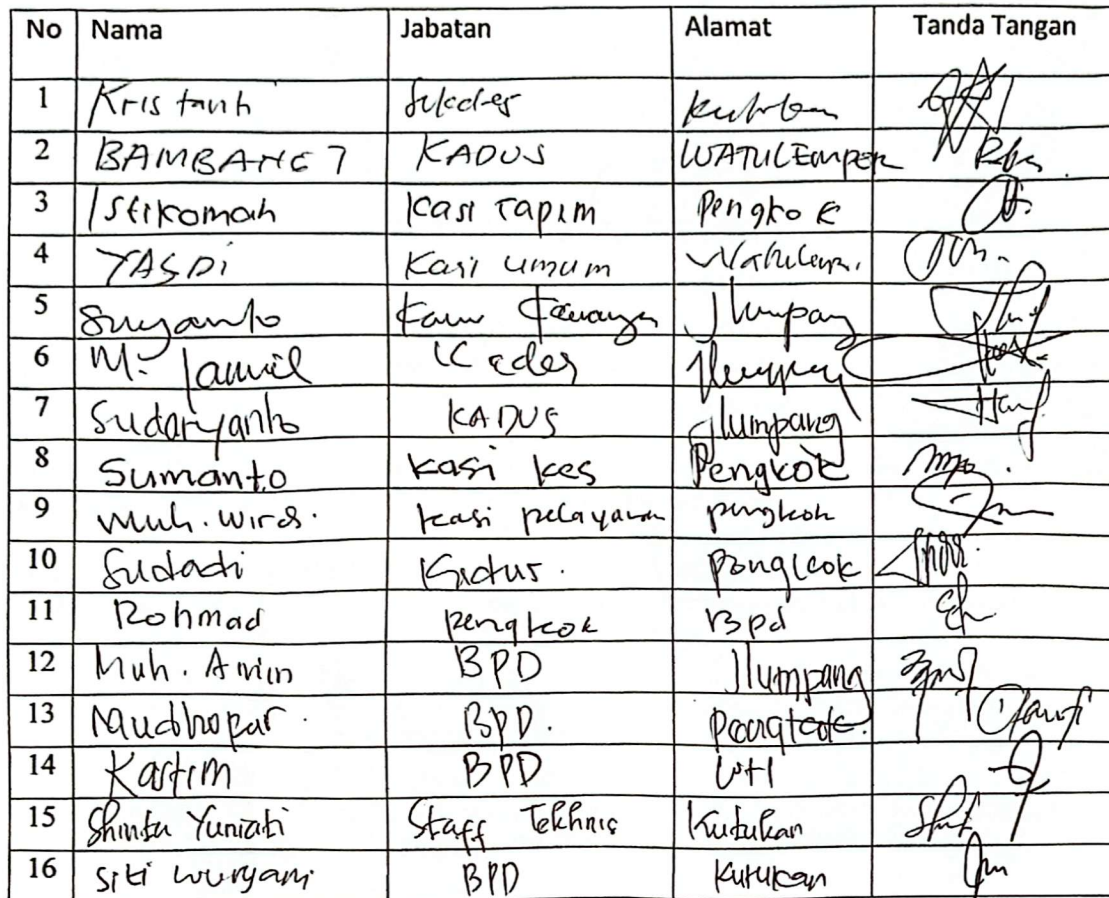 No Nama Jabatan Alamat Tanda Tangan
1 Kristanti Sekdes
2 BAMBANG T KADUS WATULEMPER
3 Istikomah Kasi Tapim Pengkok
4 YASDi Kasi umum
5 Suyanto Jlumpang
6 M. Jamil Kades
7 Sudaryanto KADUS Jlumpang
8 Sumanto kasi kes Pengkok
9 Muh. Wirds. kasi pelayanan pengkok
10 Sudadi Kadus. Pongkok
11 Rohmad pengkok Bpd
12 Muh. Amin BPD Jlumpang
13 Mudhopar. BPD. Pongkok.
14 Kastim BPD
15 Shinta Yuniati Staff Tekhnis Kutukan
16 Siti wuryani BPD Kutukan